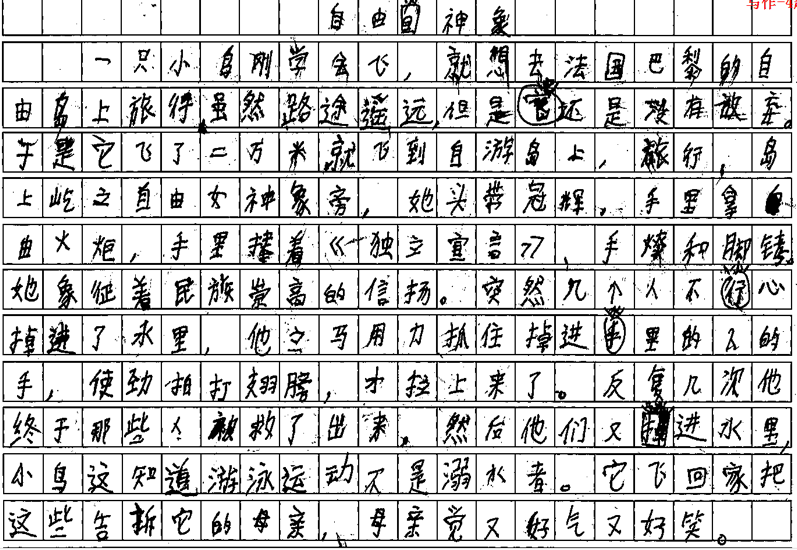 写作-4
自由自神象
一只小自刚学会飞，就想去法国巴黎的自
由岛上旅行，虽然路途遥远，但是它还是没有放弃。
于是它飞了二万米，就飞到自游岛上，旅行，岛
上屹立自由女神象旁，她头带冠辉。手里拿自
由火炬，手里捧着《独立宣言》，手燎和脚铐。
她象征着民族崇高的信扬。突然几个人不行心
掉进了水里，他立马用力抓住掉进手里的人的
手，使劲拍打翅膀，才拉上来了。反复几次他
终于那些人被救了出来，然后他们又掉进水里，
小鸟这知道游泳运动不是溺水者。它飞回家把
这些告拆它的母亲，母亲觉又好气又好笑。